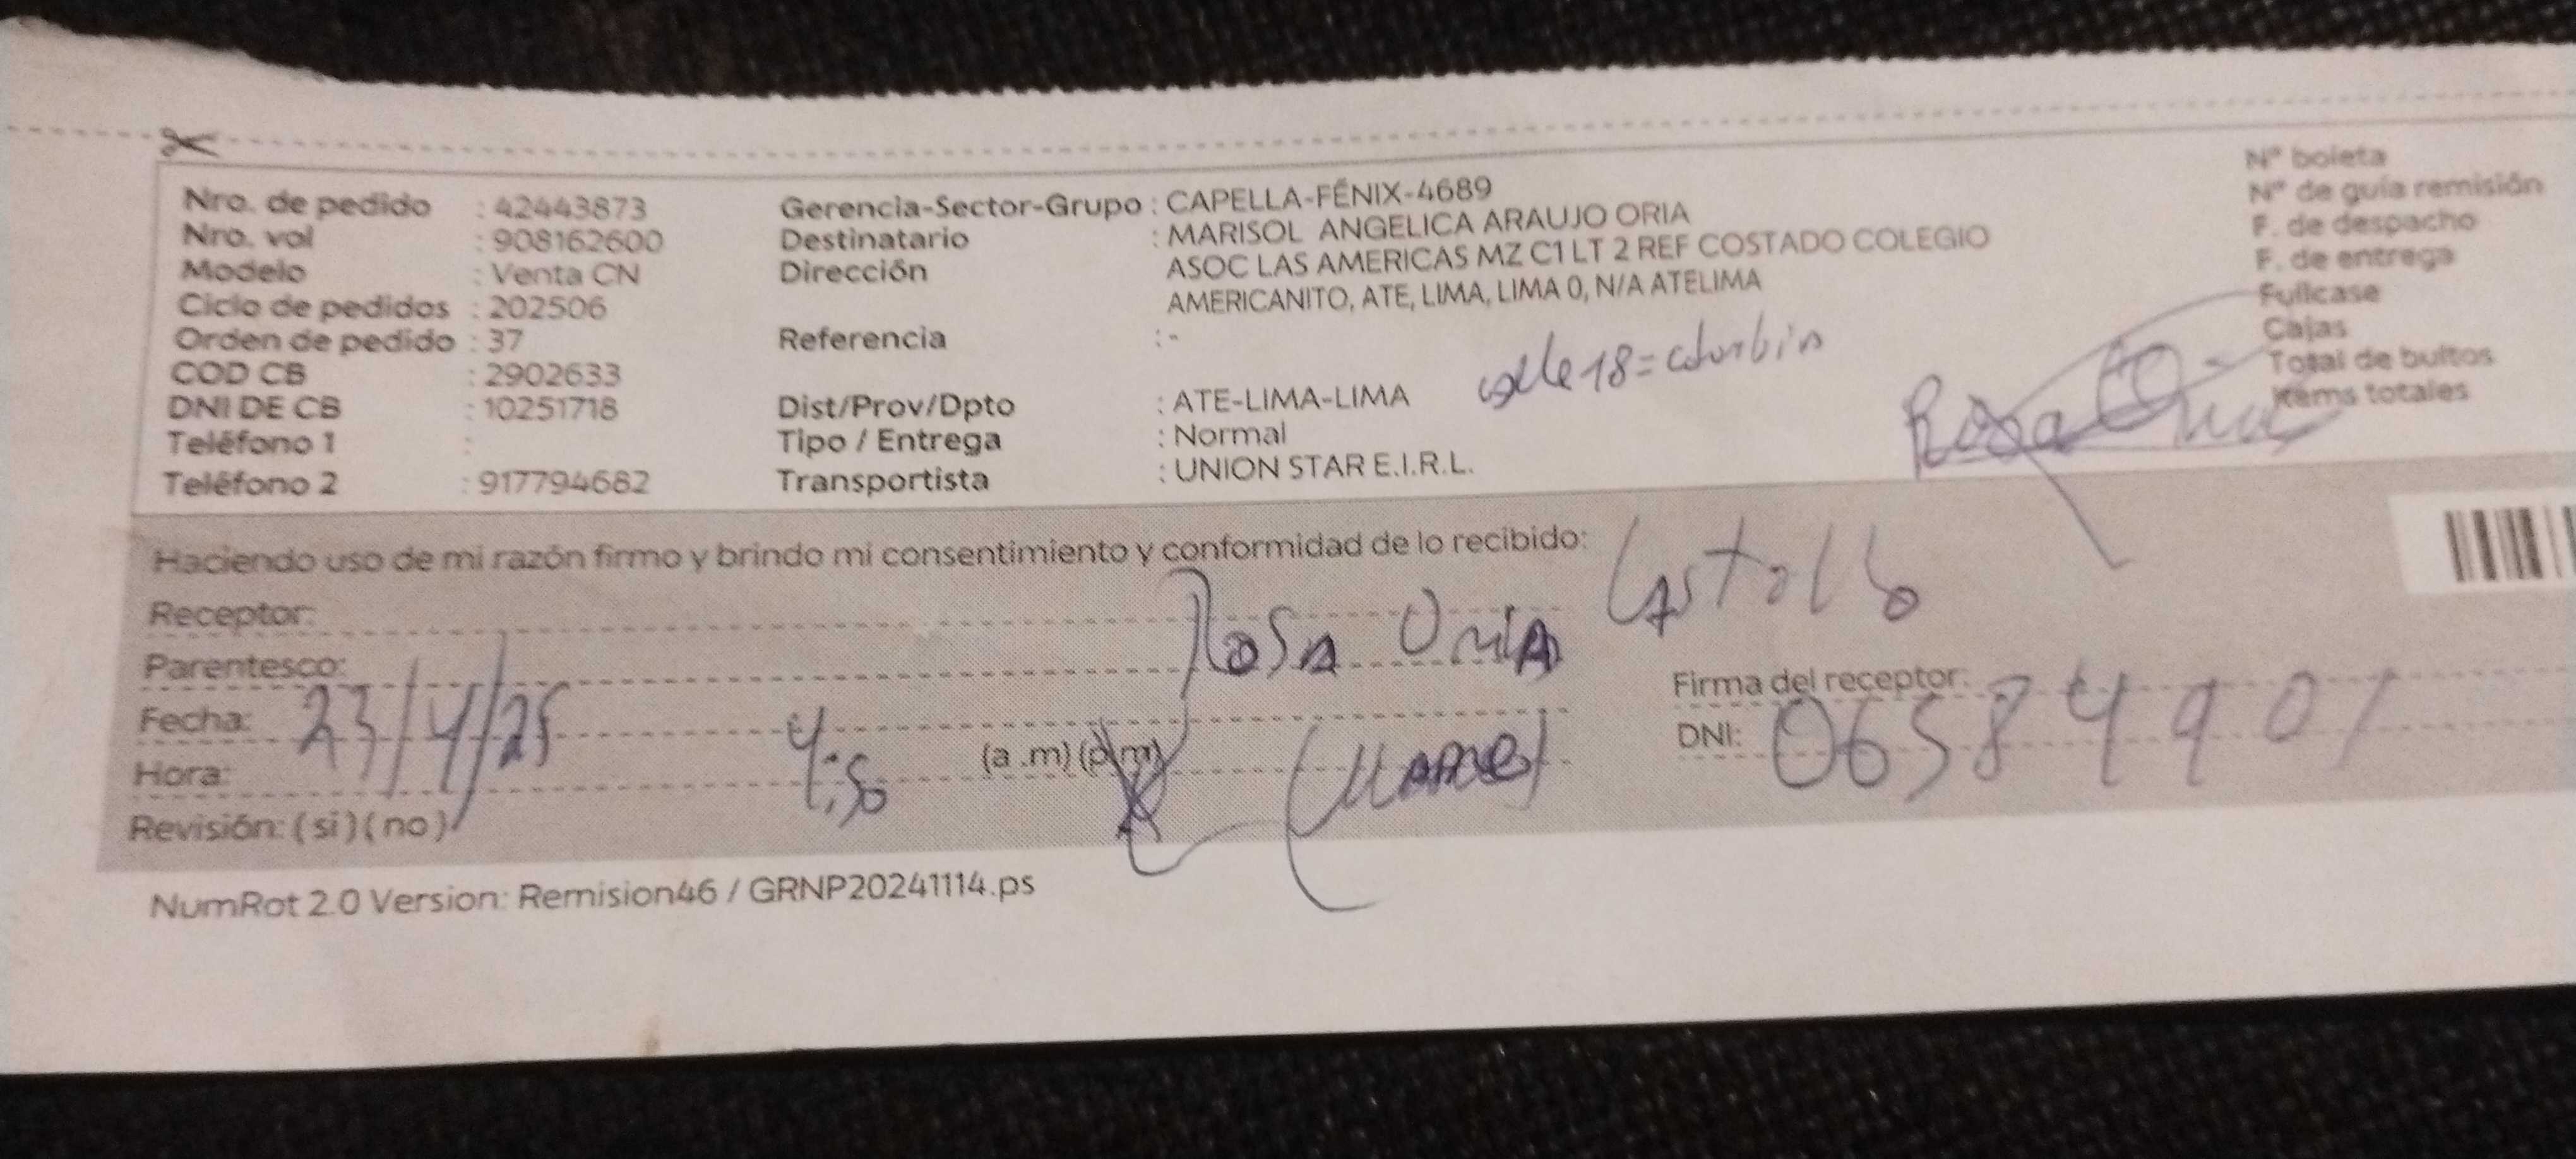 Nro. de pedido : 42443873 Gerencia-Sector-Grupo : CAPELLA-FÉNIX-4689 N° boleta
Nro. vol : 908162600 Destinatario : MARISOL ANGELICA ARAUJO ORIA N° de guía remisión
Modelo : Venta CN Dirección ASOC LAS AMERICAS MZ C1 LT 2 REF COSTADO COLEGIO F. de despacho
Ciclo de pedidos : 202506 AMERICANITO, ATE, LIMA, LIMA 0, N/A ATELIMA F. de entrega
Orden de pedido : 37 Referencia : - Fullcase
calle 18 =
COD CB : 2902633 Cajas
DNI DE CB : 10251718 Dist/Prov/Dpto : ATE-LIMA-LIMA Total de bultos
Teléfono 1 : Tipo / Entrega : Normal Items totales
Rosa Oria
Teléfono 2 : 917794682 Transportista : UNION STAR E.I.R.L.
Haciendo uso de mi razón firmo y brindo mi consentimiento y conformidad de lo recibido:
Receptor: Rosa Oria Castillo
Parentesco: Firma del receptor:
Fecha: 23/4/25 DNI: 06584901
Hora: 4:50 (a .m) (p.m) (MADRE)
Revisión: ( si ) ( no )
NumRot 2.0 Version: Remision46 / GRNP20241114.ps